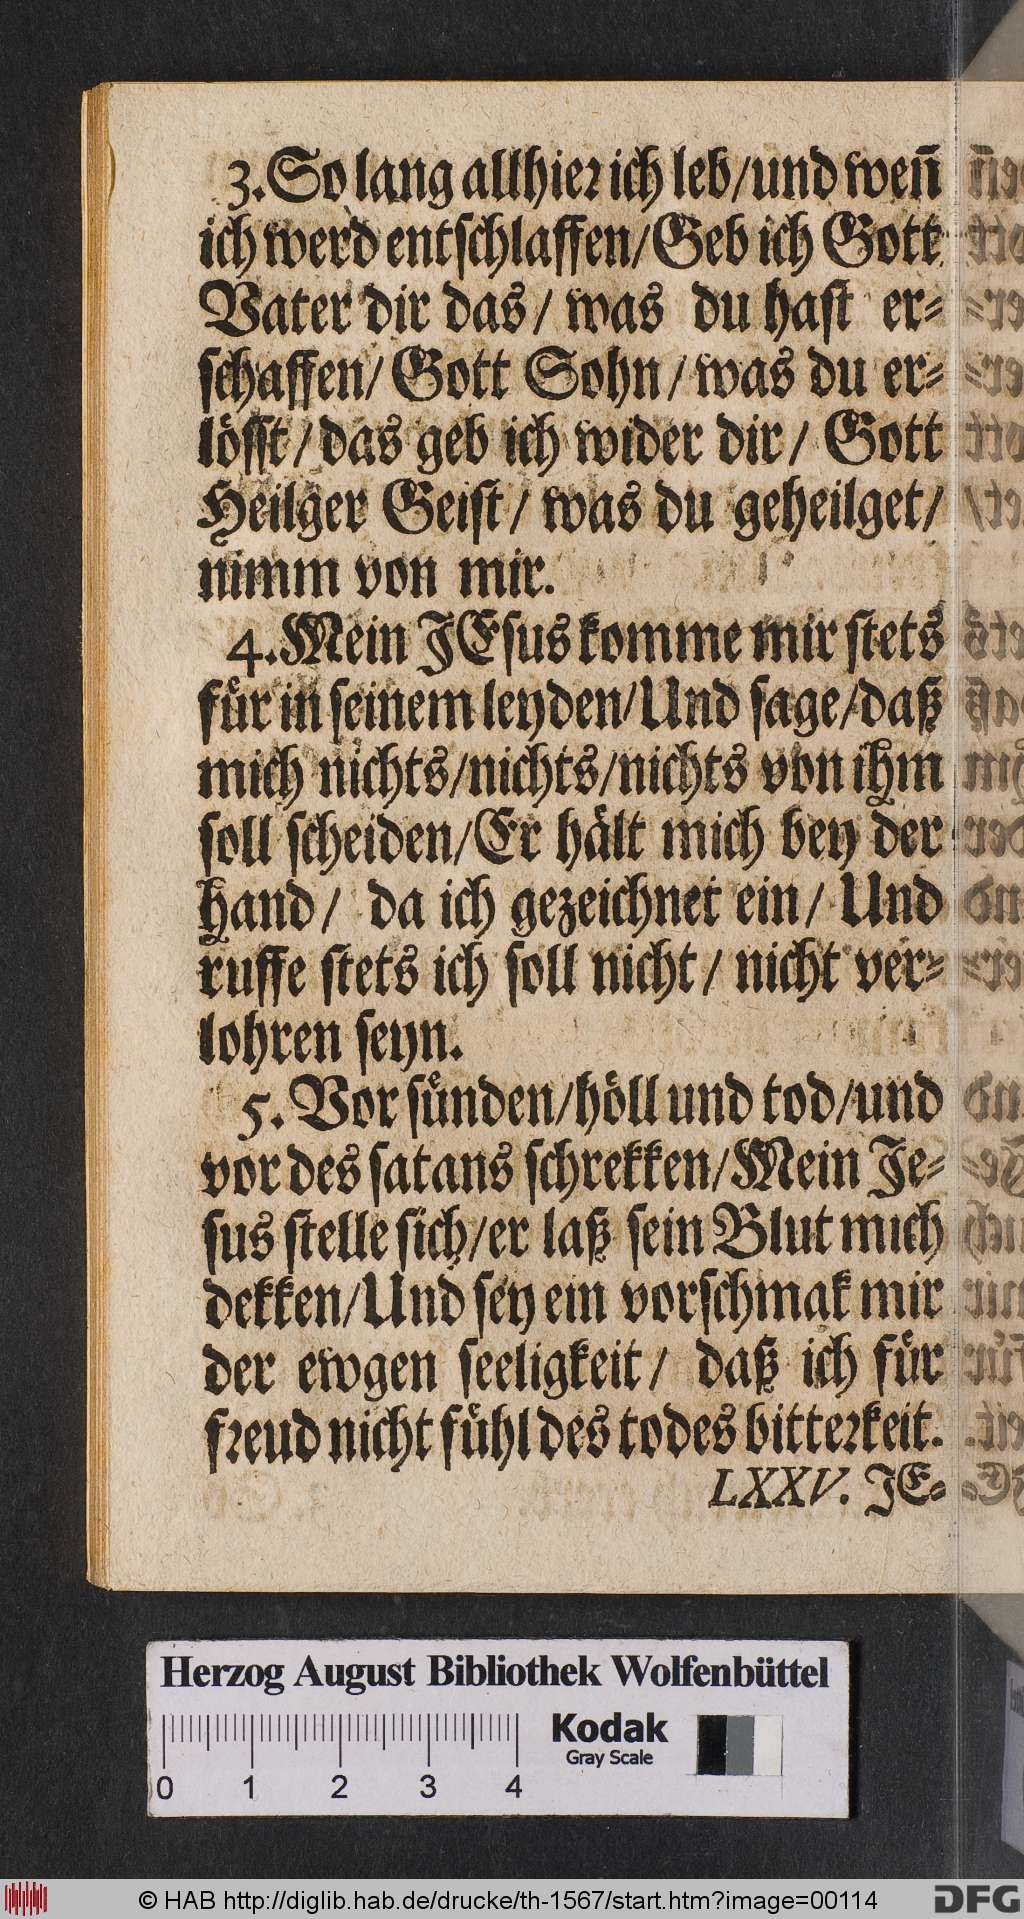 3. So lang allhier ich leb/ und weñ
ich werd entschlaffen/ Geb ich Gott
Vater dir das/ was du hast er-
schaffen/ Gott Sohn/ was du er-
lösst/ das geb ich wider dir/ Gott
Heilger Geist/ was du geheilget/
nimm von mir.
4. Mein JEsus komme mir stets
für in seinem leyden/ Und sage/ daß
mich nichts/ nichts/ nichts von ihm
soll scheiden/ Er hält mich bey der
hand/ da ich gezeichnet ein/ Und
ruffe stets ich soll nicht/ nicht ver-
lohren seyn.
5. Vor sünden/ höll und tod/ und
vor des satans schrekken/ Mein Je-
sus stelle sich/ er laß sein Blut mich
dekken/ Und sey ein vorschmak mir
der ewgen seeligkeit/ daß ich für
freud nicht fühl des todes bitterkeit.
LXXV. JE-
Herzog August Bibliothek Wolfenbüttel
Kodak
Gray Scale
0 1 2 3 4
© HAB http://diglib.hab.de/drucke/th-1567/start.htm?image=00114
DFG